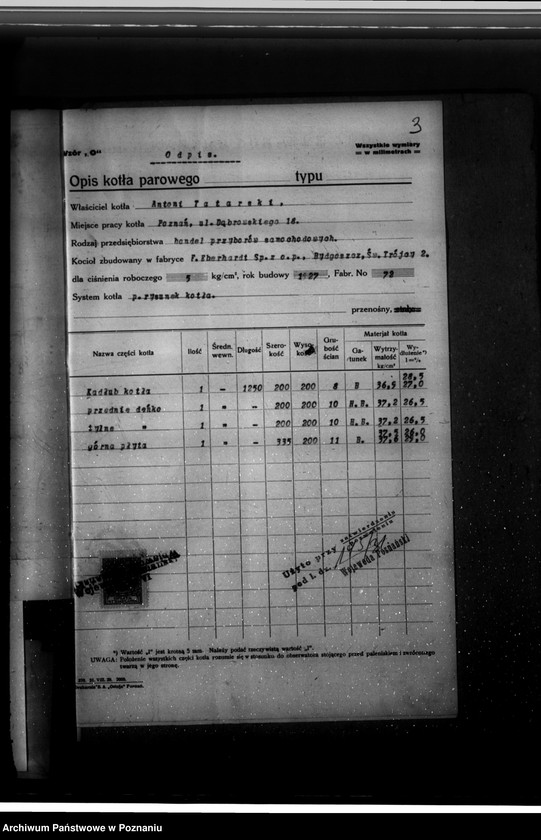 3
Wzór „O"
Wszystkie wymiary
= w milimetrach =
Odpis.
Opis kotła parowego typu
Właściciel kotła Antoni Tatarski.
Miejsce pracy kotła Poznań, ul. Dąbrowskiego 16.
Rodzaj przedsiębiorstwa handel przyborów samochodowych.
Kocioł zbudowany w fabryce F. Eberhardt Sp. z o.p., Bydgoszcz, Św. Trójcy 2.
dla ciśnienia roboczego 5 kg/cm², rok budowy 1927, Fabr. No 72
System kotła p. rysunek kotła.
przenośny,
Nazwa części kotła Ilość Średn. wewn. Długość Szerokość Wysokość Grubość ścian Materjał kotła
Gatunek Wytrzymałość kg/cm² Wydłużenie*)
28,5
Kadłub kotła 1 - 1250 200 200 8 B 36,9 27,0
przednie denko 1 " - 200 200 10 B.B. 37,2 26,5
tylne " 1 " - 200 200 10 B.B. 37,2 26,5
37,5 26,0
górna płyta 1 " - 335 200 11 B.
Użyto przy zatwierdzeniu
pod l. dz.
Wojewoda Poznański
*) Wartość „l" jest kotzną 5 mm. Należy podać rzeczywistą wartość „l".
UWAGA: Położenie wszystkich części kotła rozumie się w stosunku do obserwatora stojącego przed paleniskiem i zwróconego
twarzą w jego stronę.
Drukarnia S. A. „Ostoja" Poznań.
Archiwum Państwowe w Poznaniu